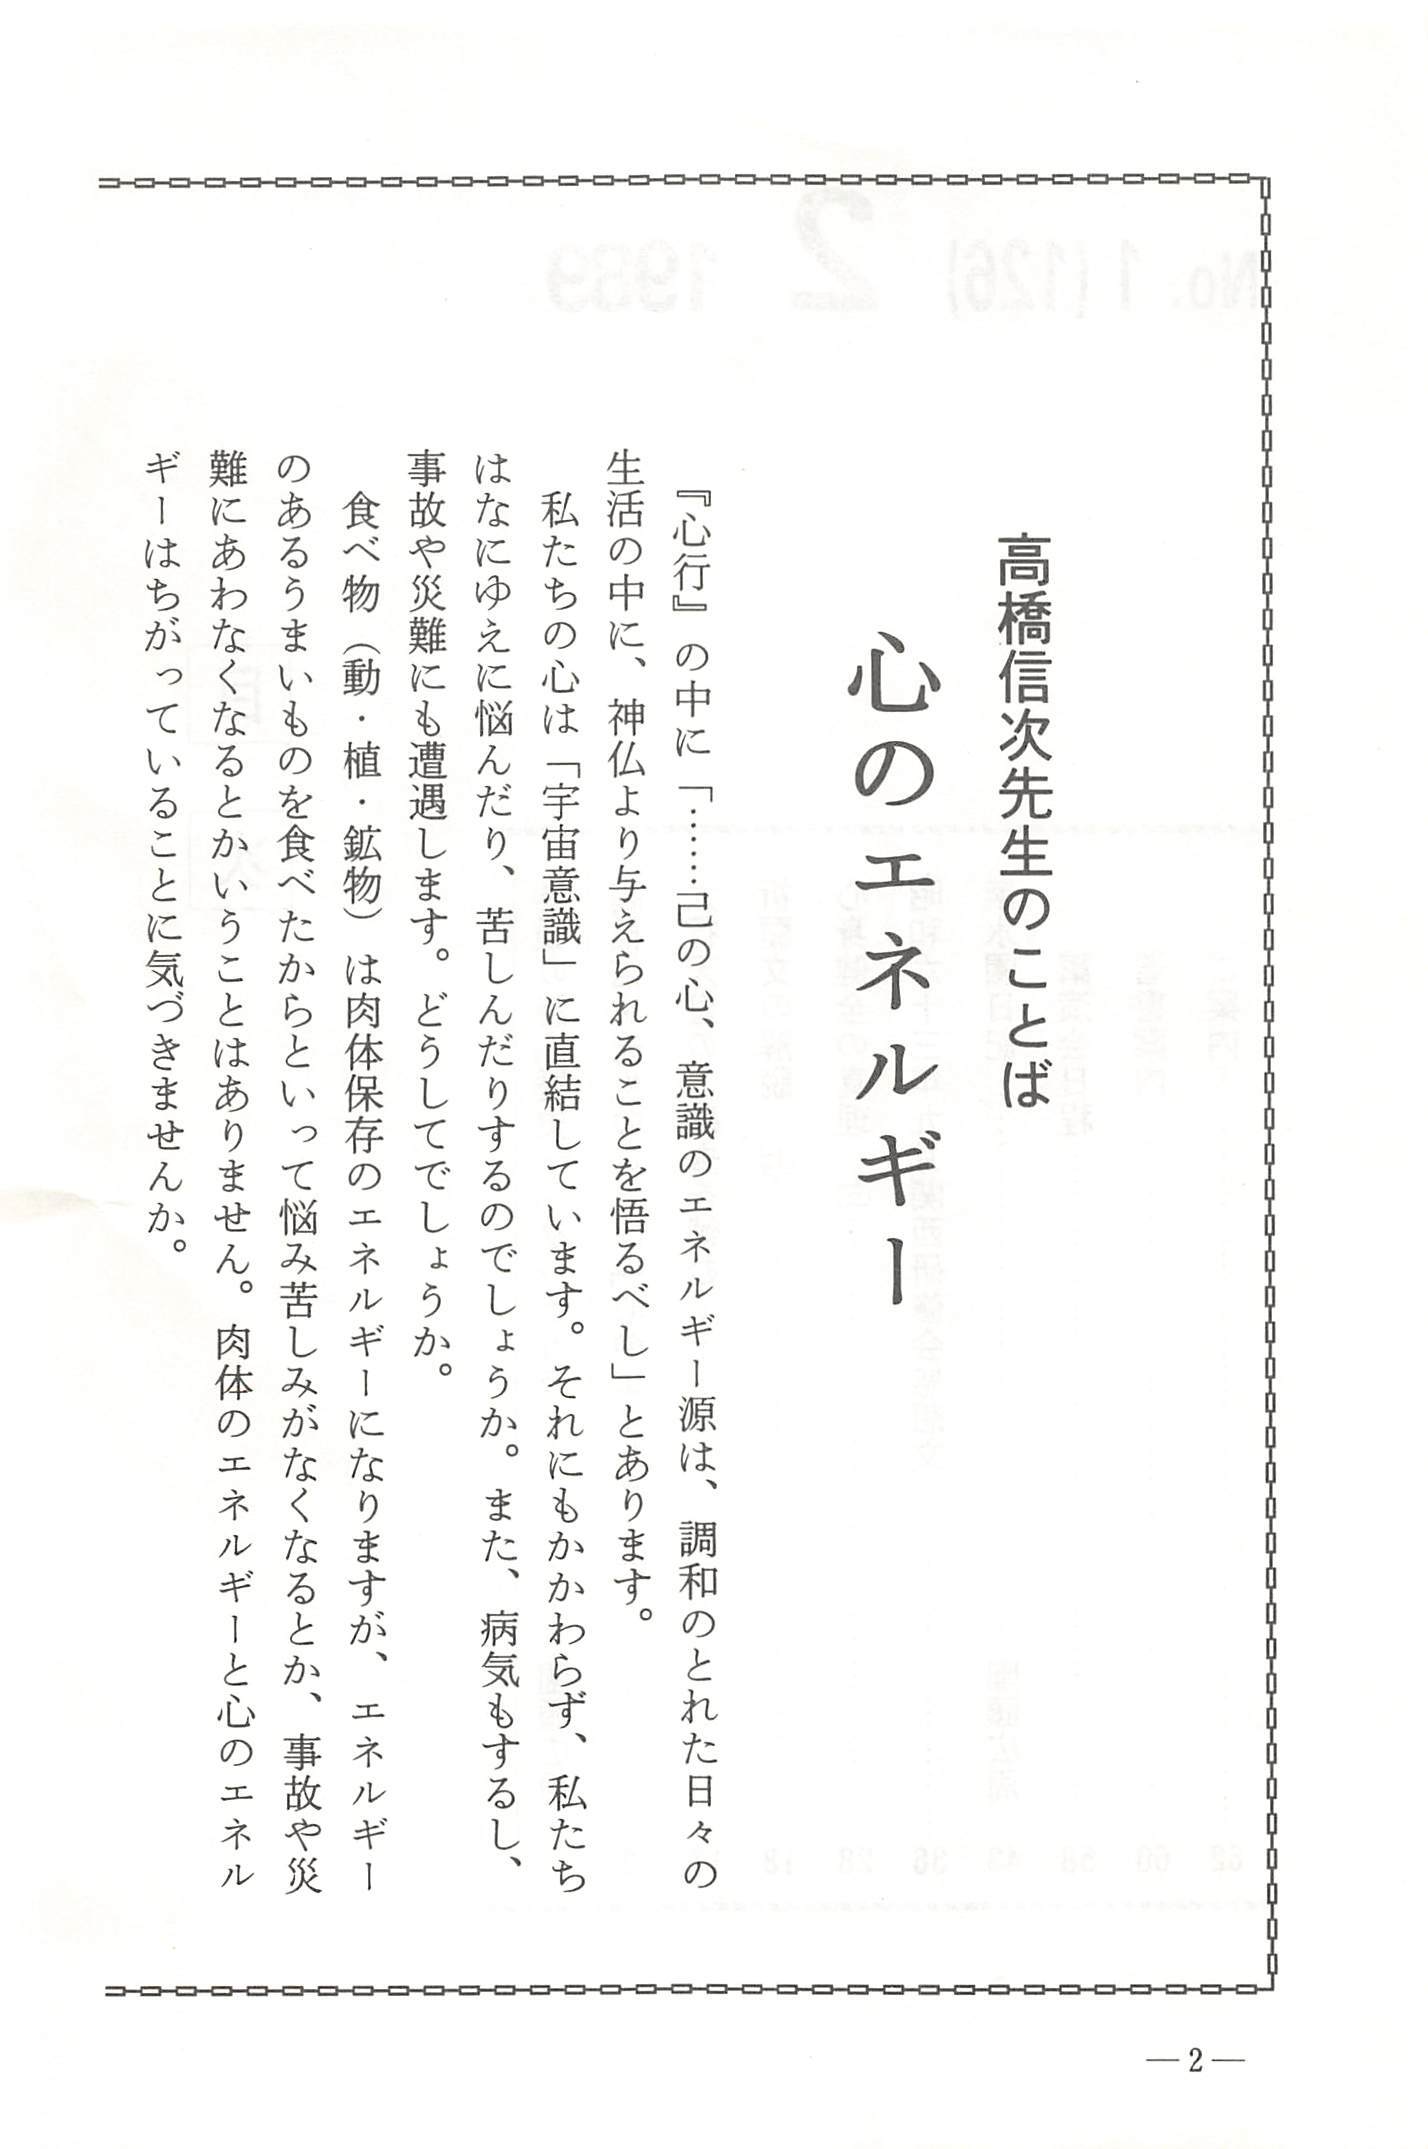 高橋信次先生のことば
心のエネルギー
『心行』の中に「……己の心、意識のエネルギー源は、調和のとれた日々の
生活の中に、神仏より与えられることを悟るべし」とあります。
私たちの心は「宇宙意識」に直結しています。それにもかかわらず、私たち
はなにゆえに悩んだり、苦しんだりするのでしょうか。また、病気もするし、
事故や災難にも遭遇します。どうしてでしょうか。
食べ物（動・植・鉱物）は肉体保存のエネルギーになりますが、エネルギー
のあるうまいものを食べたからといって悩み苦しみがなくなるとか、事故や災
難にあわなくなるとかいうことはありません。肉体のエネルギーと心のエネル
ギーはちがっていることに気づきませんか。
—2—